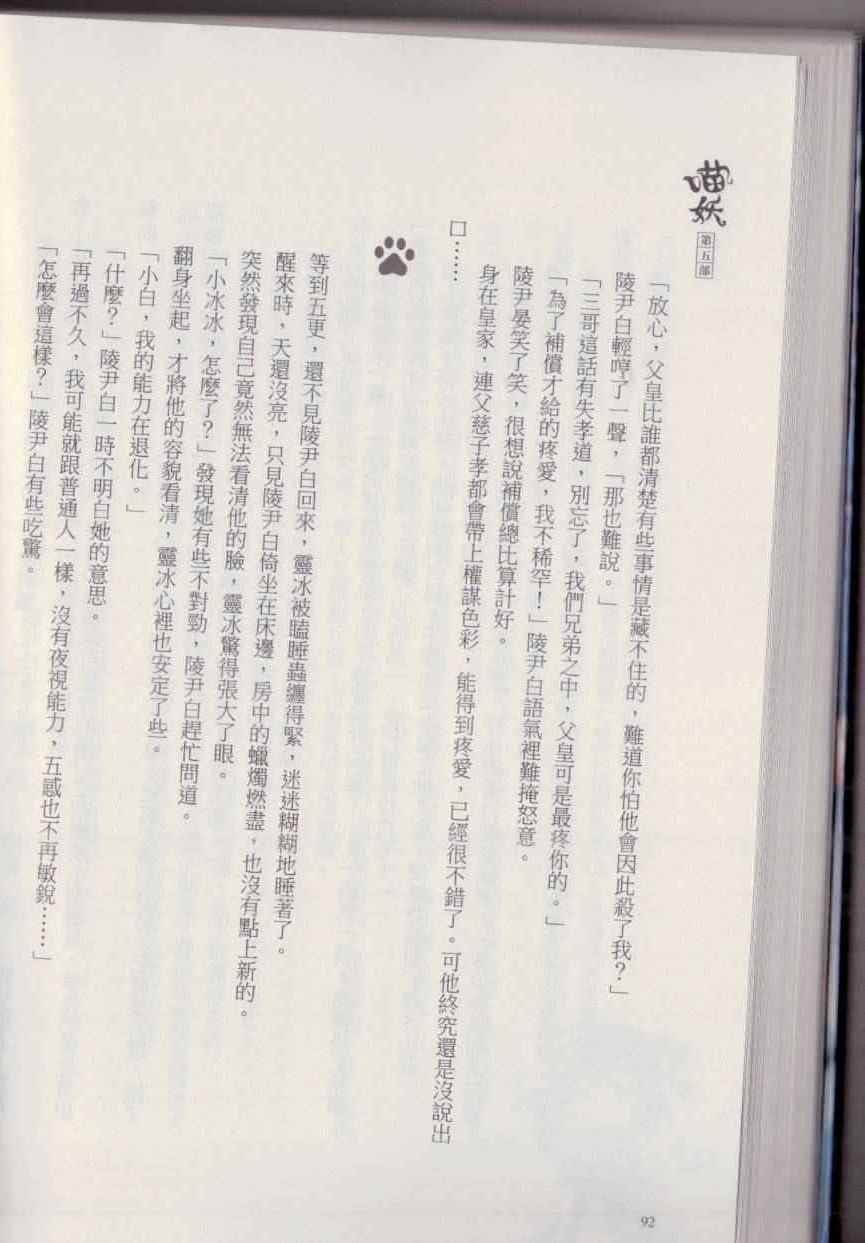 喵妖
第五部
「放心，父皇比誰都清楚有些事情是藏不住的，難道你怕他會因此殺了我？」
陵尹白輕哼了一聲，「那也難說。」
「三哥這話有失孝道，別忘了，我們兄弟之中，父皇可是最疼你的。」
「為了補償才給的疼愛，我不稀罕！」陵尹白語氣裡難掩怒意。
陵尹晏笑了笑，很想說補償總比算計好。
身在皇家，連父慈子孝都會帶上權謀色彩，能得到疼愛，已經很不錯了。可他終究還是沒說出
口……
等到五更，還不見陵尹白回來，靈冰被瞌睡蟲纏得緊，迷迷糊糊地睡著了。
醒來時，天還沒亮，只見陵尹白倚坐在床邊，房中的蠟燭燃盡，也沒有點上新的。
突然發現自己竟然無法看清他的臉，靈冰驚得張大了眼。
「小冰冰，怎麼了？」發現她有些不對勁，陵尹白趕忙問道。
翻身坐起，才將他的容貌看清，靈冰心裡也安定了些。
「小白，我的能力在退化。」
「什麼？」陵尹白一時不明白她的意思。
「再過不久，我可能就跟普通人一樣，沒有夜視能力，五感也不再敏銳……」
「怎麼會這樣？」陵尹白有些吃驚。
92